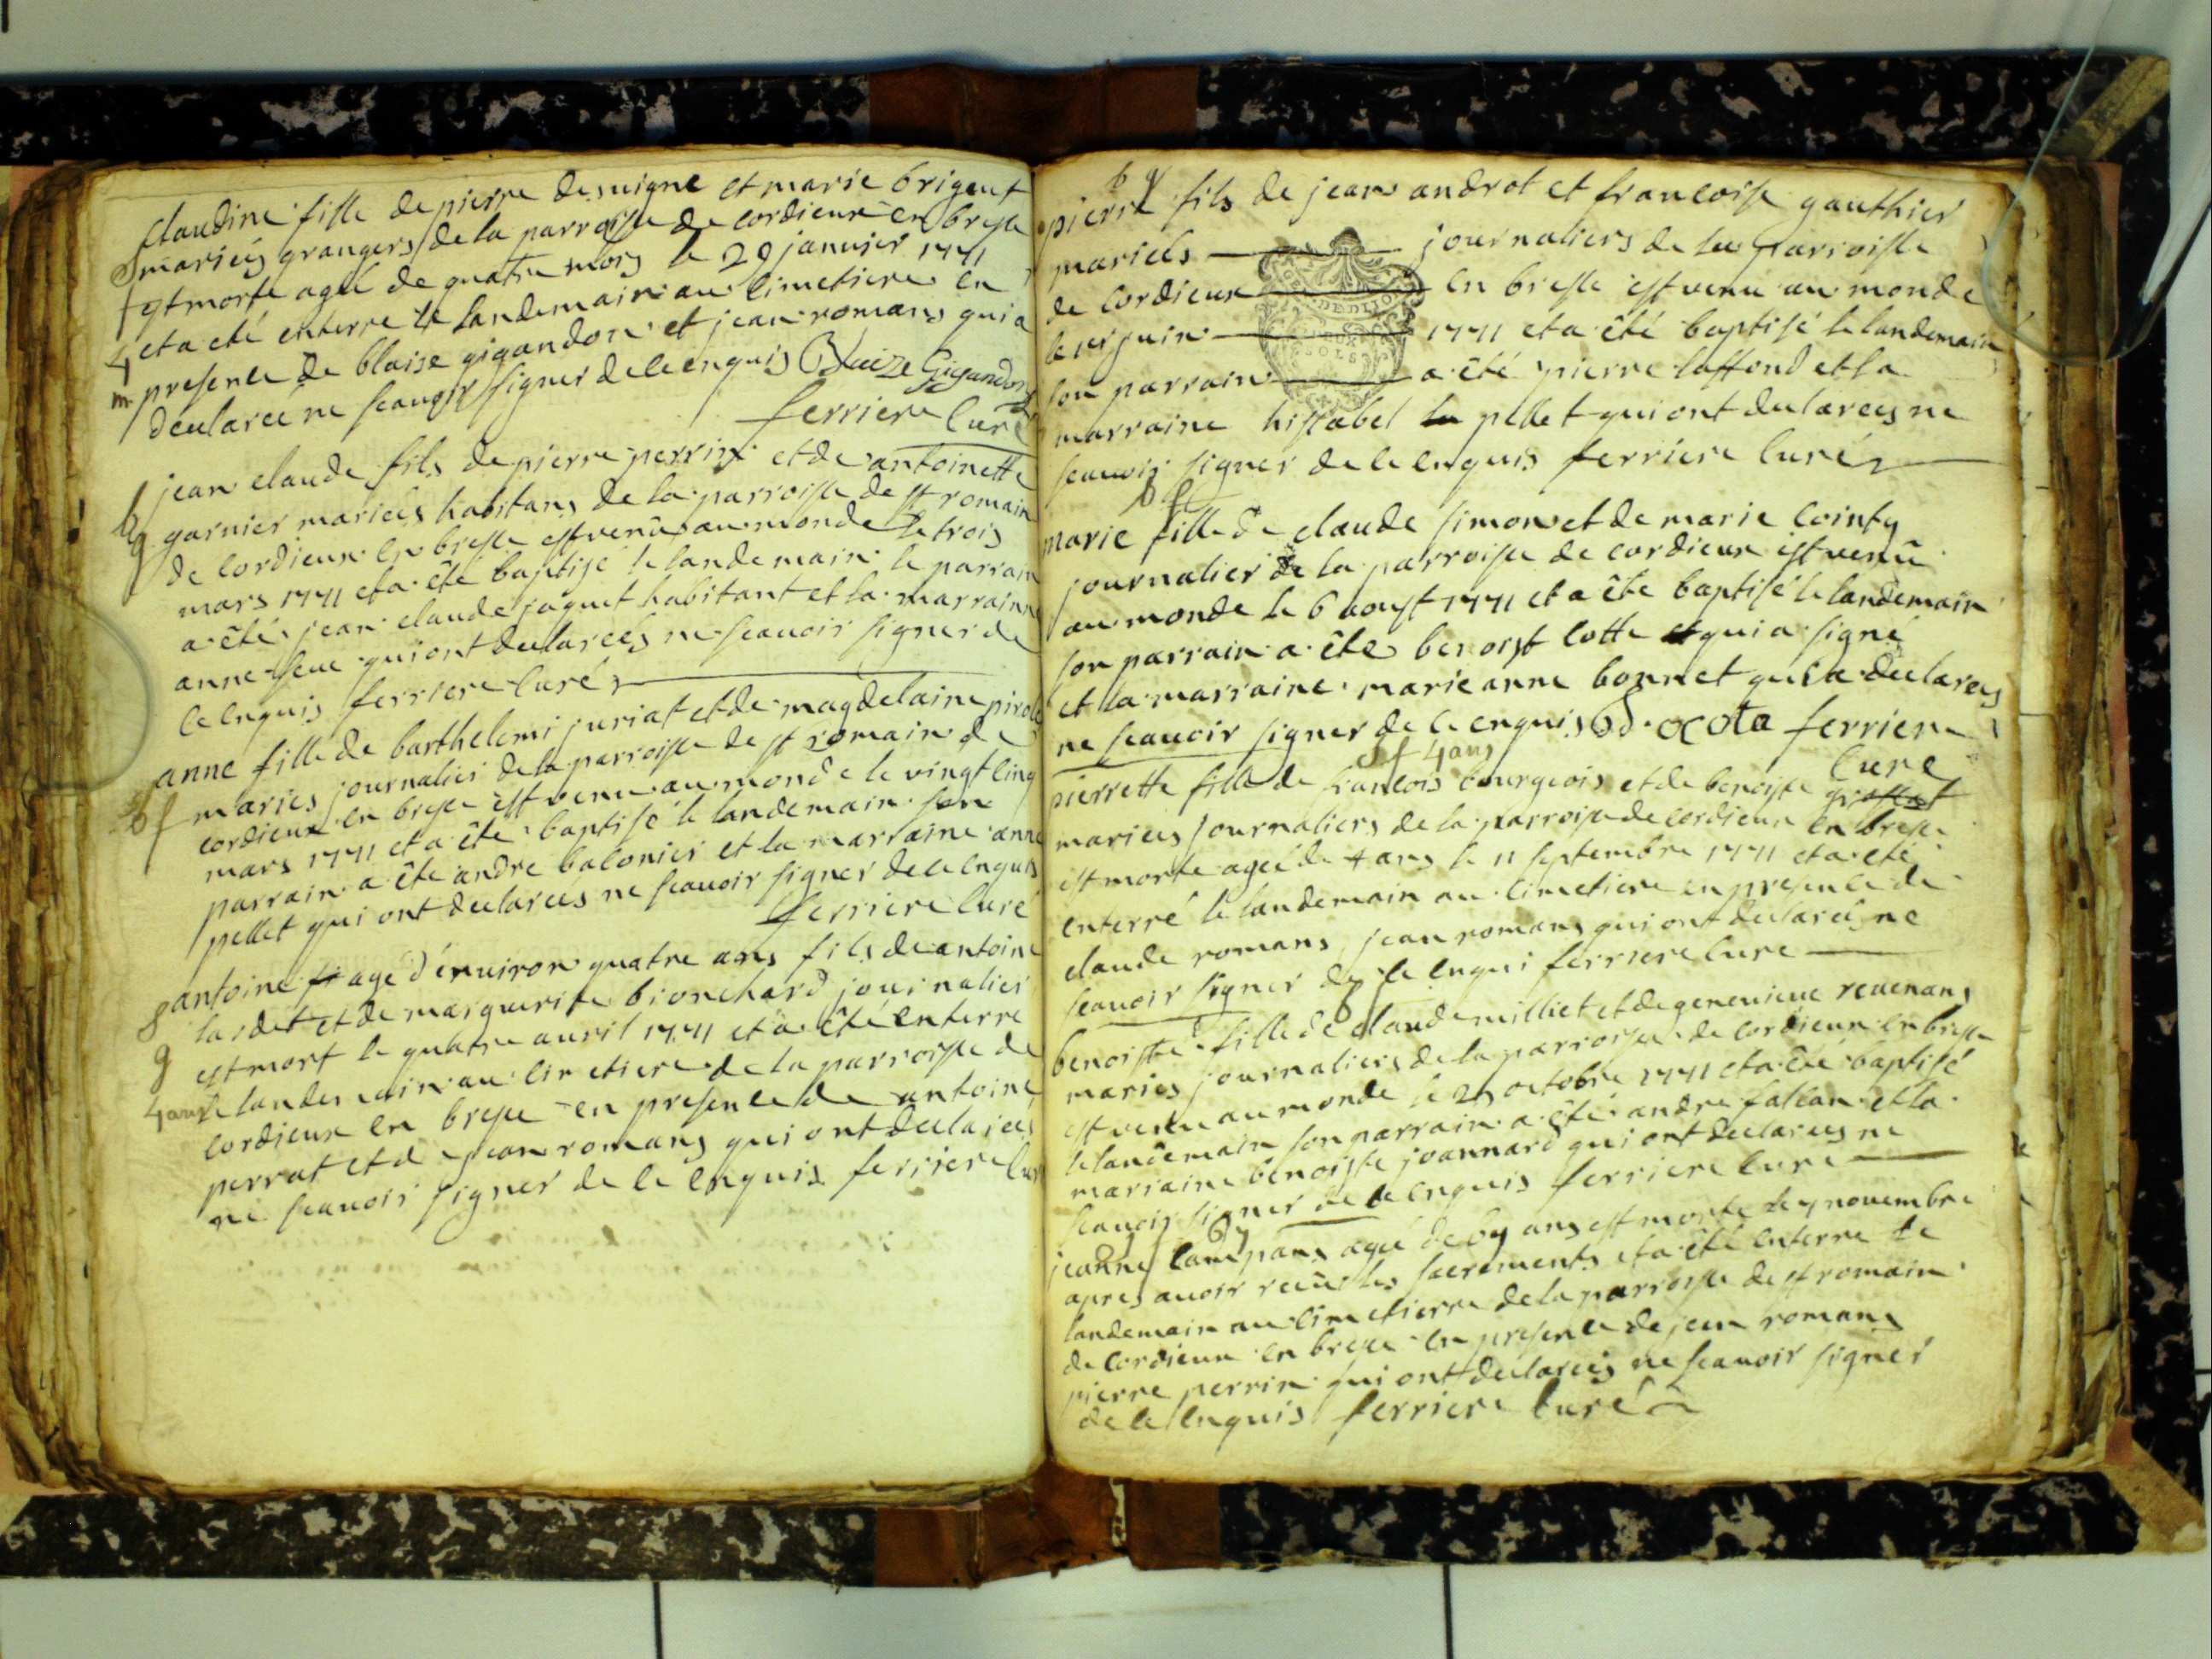 claudine fille de pierre desuigne et marie brigent
S mariés grangers de la parroisse de cordieux en bresse
f est morte agée de quatre mois le 29 januier 1771
4 et a eté enterre le landemain au cimetiere en
m presence de blaise gigandon et jean romans qui a
declareé ne scauoir signer de ce enquis Blaize Gigandon
ferriere curé
jean claude fils de pierre perrin et de antoinette
b garnier marieés habitans de la parroisse de st romain
g de cordieux en bresse est venû au monde le trois
mars 1771 et a êté baptisé le landemain le parrain
a êté jean claude jaquet habitant et la marraine
anne seue qui ont declareés ne scauoir signer de
ce enquis ferriere curé
anne fille de barthelemi juriat et de magdelaine pirolet
b f maries journalier de la parroisse de st romain de
cordieux en bresse est venu au monde le vingt cinq
mars 1771 et a êté baptisé le landemain son
parrain a êté andre balonier et la marraine anne
pellet qui ont declareés ne scauoir signer de ce enquis
ferriere curé
S antoine fi agé d'énuiron quatre ans fils de antoine
lardet et de marguerite bionchard journalier
g est mort le quatre auril 1771 et a êté enterre
4 ans le landemain au cimetiere de la parroisse de
cordieux en bresse en presence de antoine
perrat et de jean romans qui ont declareés
ne scauoir signer de ce enquis ferriere curé
b g
pierre fils de jean androt et francoise gauthier
marieés journaliers de la parroisse
de cordieux en bresse est venu au monde
le juin 1771 et a êté baptisé le landemain
son parrain a êté pierre laffond et la
marraine hisabel la pellet qui ont declareés ne
scauoir signer de ce enquis ferriere curé
b f
marie fille de claude simon et de marie cointy
journalier de la parroisse de cordieux est venû
au monde le 6 aoust 1771 et a êté baptisé le landemain
son parrain a êté benoist cotte et qui a signé
et la marraine marie anne bonnet qui a declareés
ne scauoir signer de ce enquis B. cota ferriere
S f 4 ans curé
pierrette fille de francois bourgeois et de benoiste
marieés journaliers de la parroisse de cordieux en bresse
est morte ageé de 4 ans le 11 septembre 1771 et a eté
enterré le landemain au cimetiere en presence de
claude romans jean romans qui ont declareé ne
scauoir signer de ce enqui ferriere curé
benoiste fille de claude milliet et de geneuieue reuenans
maries journaliers de la parroisse de cordieux en bresse
est venu au monde le 29 octobre 1771 et a êté baptisé
le landemain son parrain a êté andre fallan et la
marraine benoiste joannard qui ont declareés ne
scauoir signer de ce enquis ferriere curé
jeanne campans ageé de 69 ans est morte le 7 novembre
apres auoir recû les sacrements et a êté enterre le
landemain au cimetierre de la parroisse de st romain
de cordieux en bresse en presence de jean romans
pierre perrin qui ont declareés ne scauoir signer
de ce enquis ferriere curé